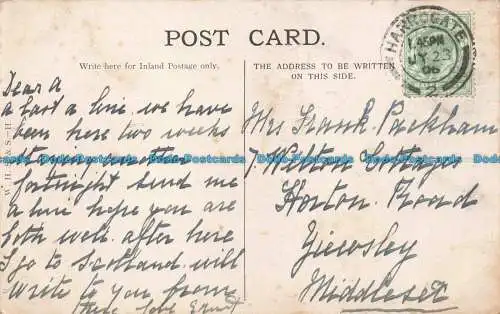 POST CARD.
Write here for Inland Postage only.
THE ADDRESS TO BE WRITTEN
ON THIS SIDE.
HARROGATE
1.45PM
JY 23
06
Dear A
a line we have
been here two weeks
fortnight send me
a line hope you are
both well. after here
I go to Scotland will
write to you from
there love Ernest
Mrs Frank Packham
7 Welton Cottages
Horton Road
Yiewsley
Middlesex
W. H. S. & S.
Dodo-Postcards